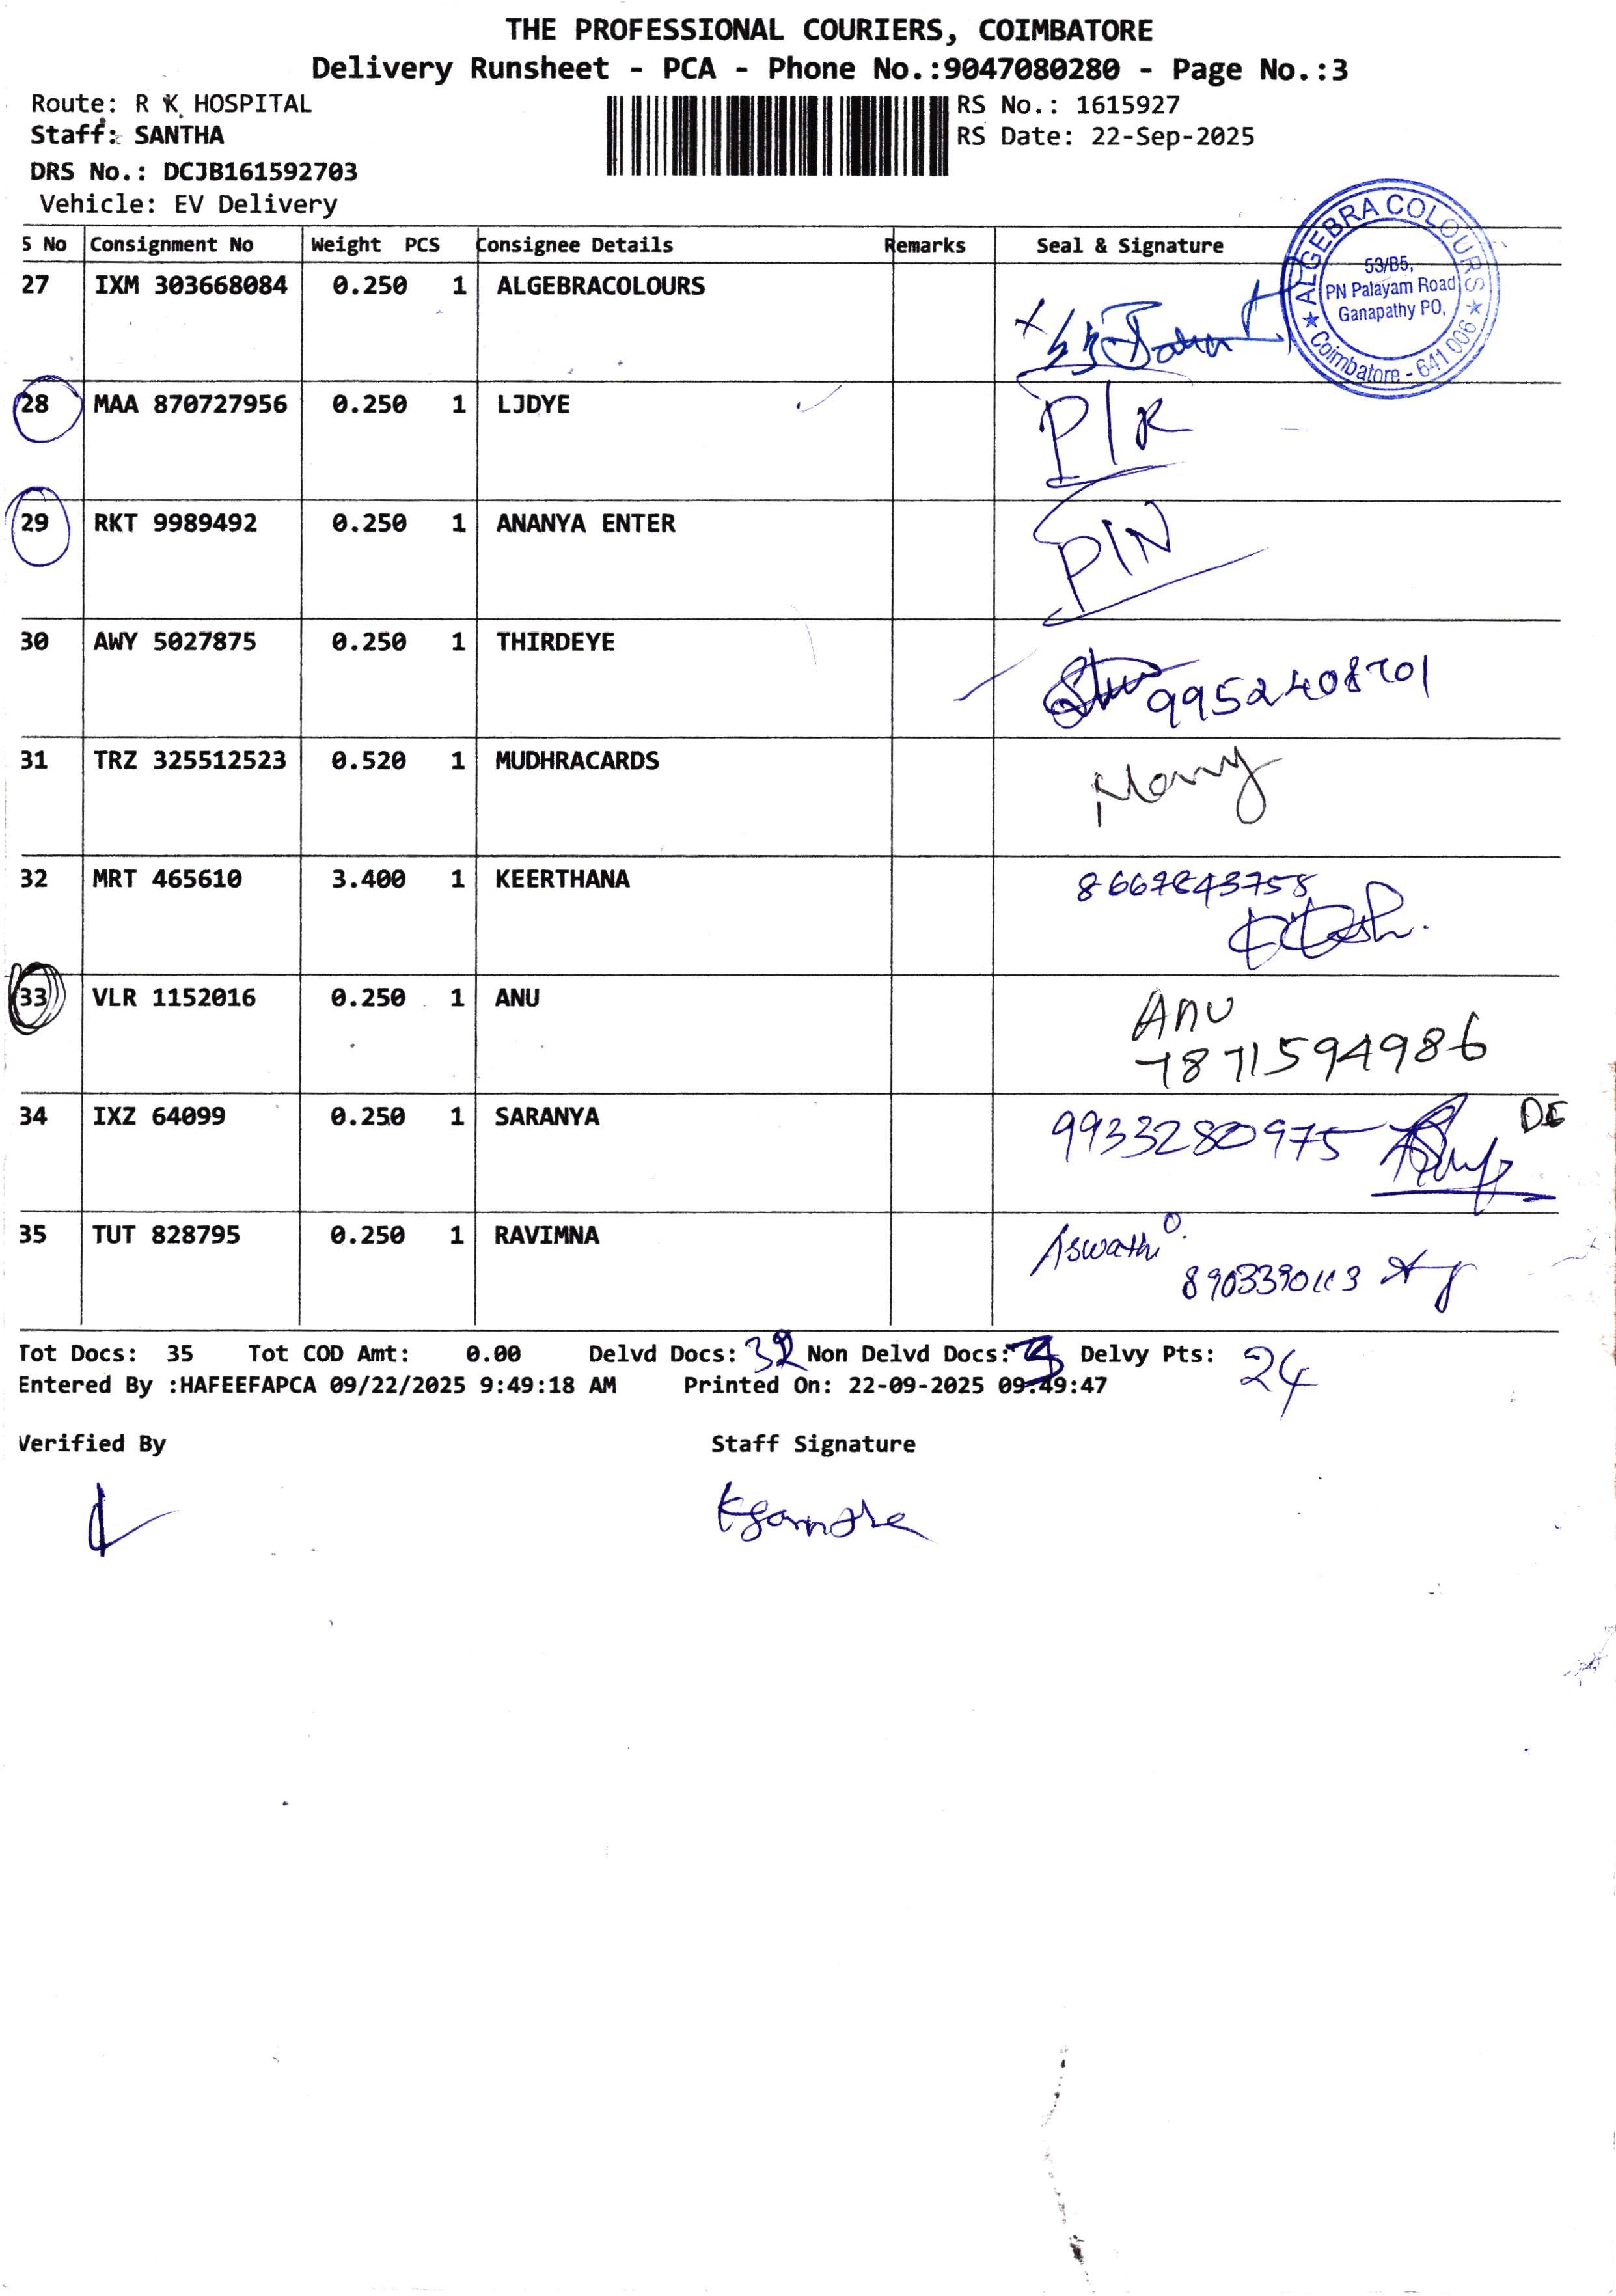 THE PROFESSIONAL COURIERS, COIMBATORE
Delivery Runsheet - PCA - Phone No.:9047080280 - Page No.:3
Route: R K HOSPITAL
RS No.: 1615927
Staff: SANTHA
RS Date: 22-Sep-2025
DRS No.: DCJB161592703
Vehicle: EV Delivery
S No Consignment No Weight PCS Consignee Details Remarks Seal & Signature
27 IXM 303668084 0.250 1 ALGEBRACOLOURS
ALGEBRA COLOURS
53/B5,
PN Palayam Road
Ganapathy PO,
Coimbatore - 641 006
28 MAA 870727956 0.250 1 LJDYE P/R
29 RKT 9989492 0.250 1 ANANYA ENTER P/N
30 AWY 5027875 0.250 1 THIRDEYE
9952408701
31 TRZ 325512523 0.520 1 MUDHRACARDS
32 MRT 465610 3.400 1 KEERTHANA
33 VLR 1152016 0.250 1 ANU Anu
7871594986
34 IXZ 64099 0.250 1 SARANYA 9933280975
35 TUT 828795 0.250 1 RAVIMNA Aswathi
Tot Docs: 35 Tot COD Amt: 0.00 Delvd Docs: 32 Non Delvd Docs: 3 Delvy Pts: 24
Entered By :HAFEEFAPCA 09/22/2025 9:49:18 AM Printed On: 22-09-2025 09:49:47
Verified By Staff Signature